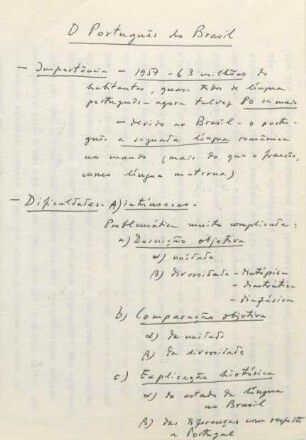 O Português do Brasil
— Importância — 1957 – 63 milhões de
habitantes, quase todos de língua
portuguesa – agora talvez 80 ou mais
— devido ao Brasil – o portu-
guês a segunda língua românica
no mundo (mais do que o francês,
como língua materna)
— Dificuldades – A) intrínsecas –
Problemática muito complicada:
a) Descrição objetiva
α) unidade
β) diversidade – diatópica
– diastrática
– diafásica
b) Comparação objetiva
α) da unidade
β) da diversidade
c) Explicação histórica
α) do estado da língua
no Brasil
β) das diferenças com respeito
a Portugal